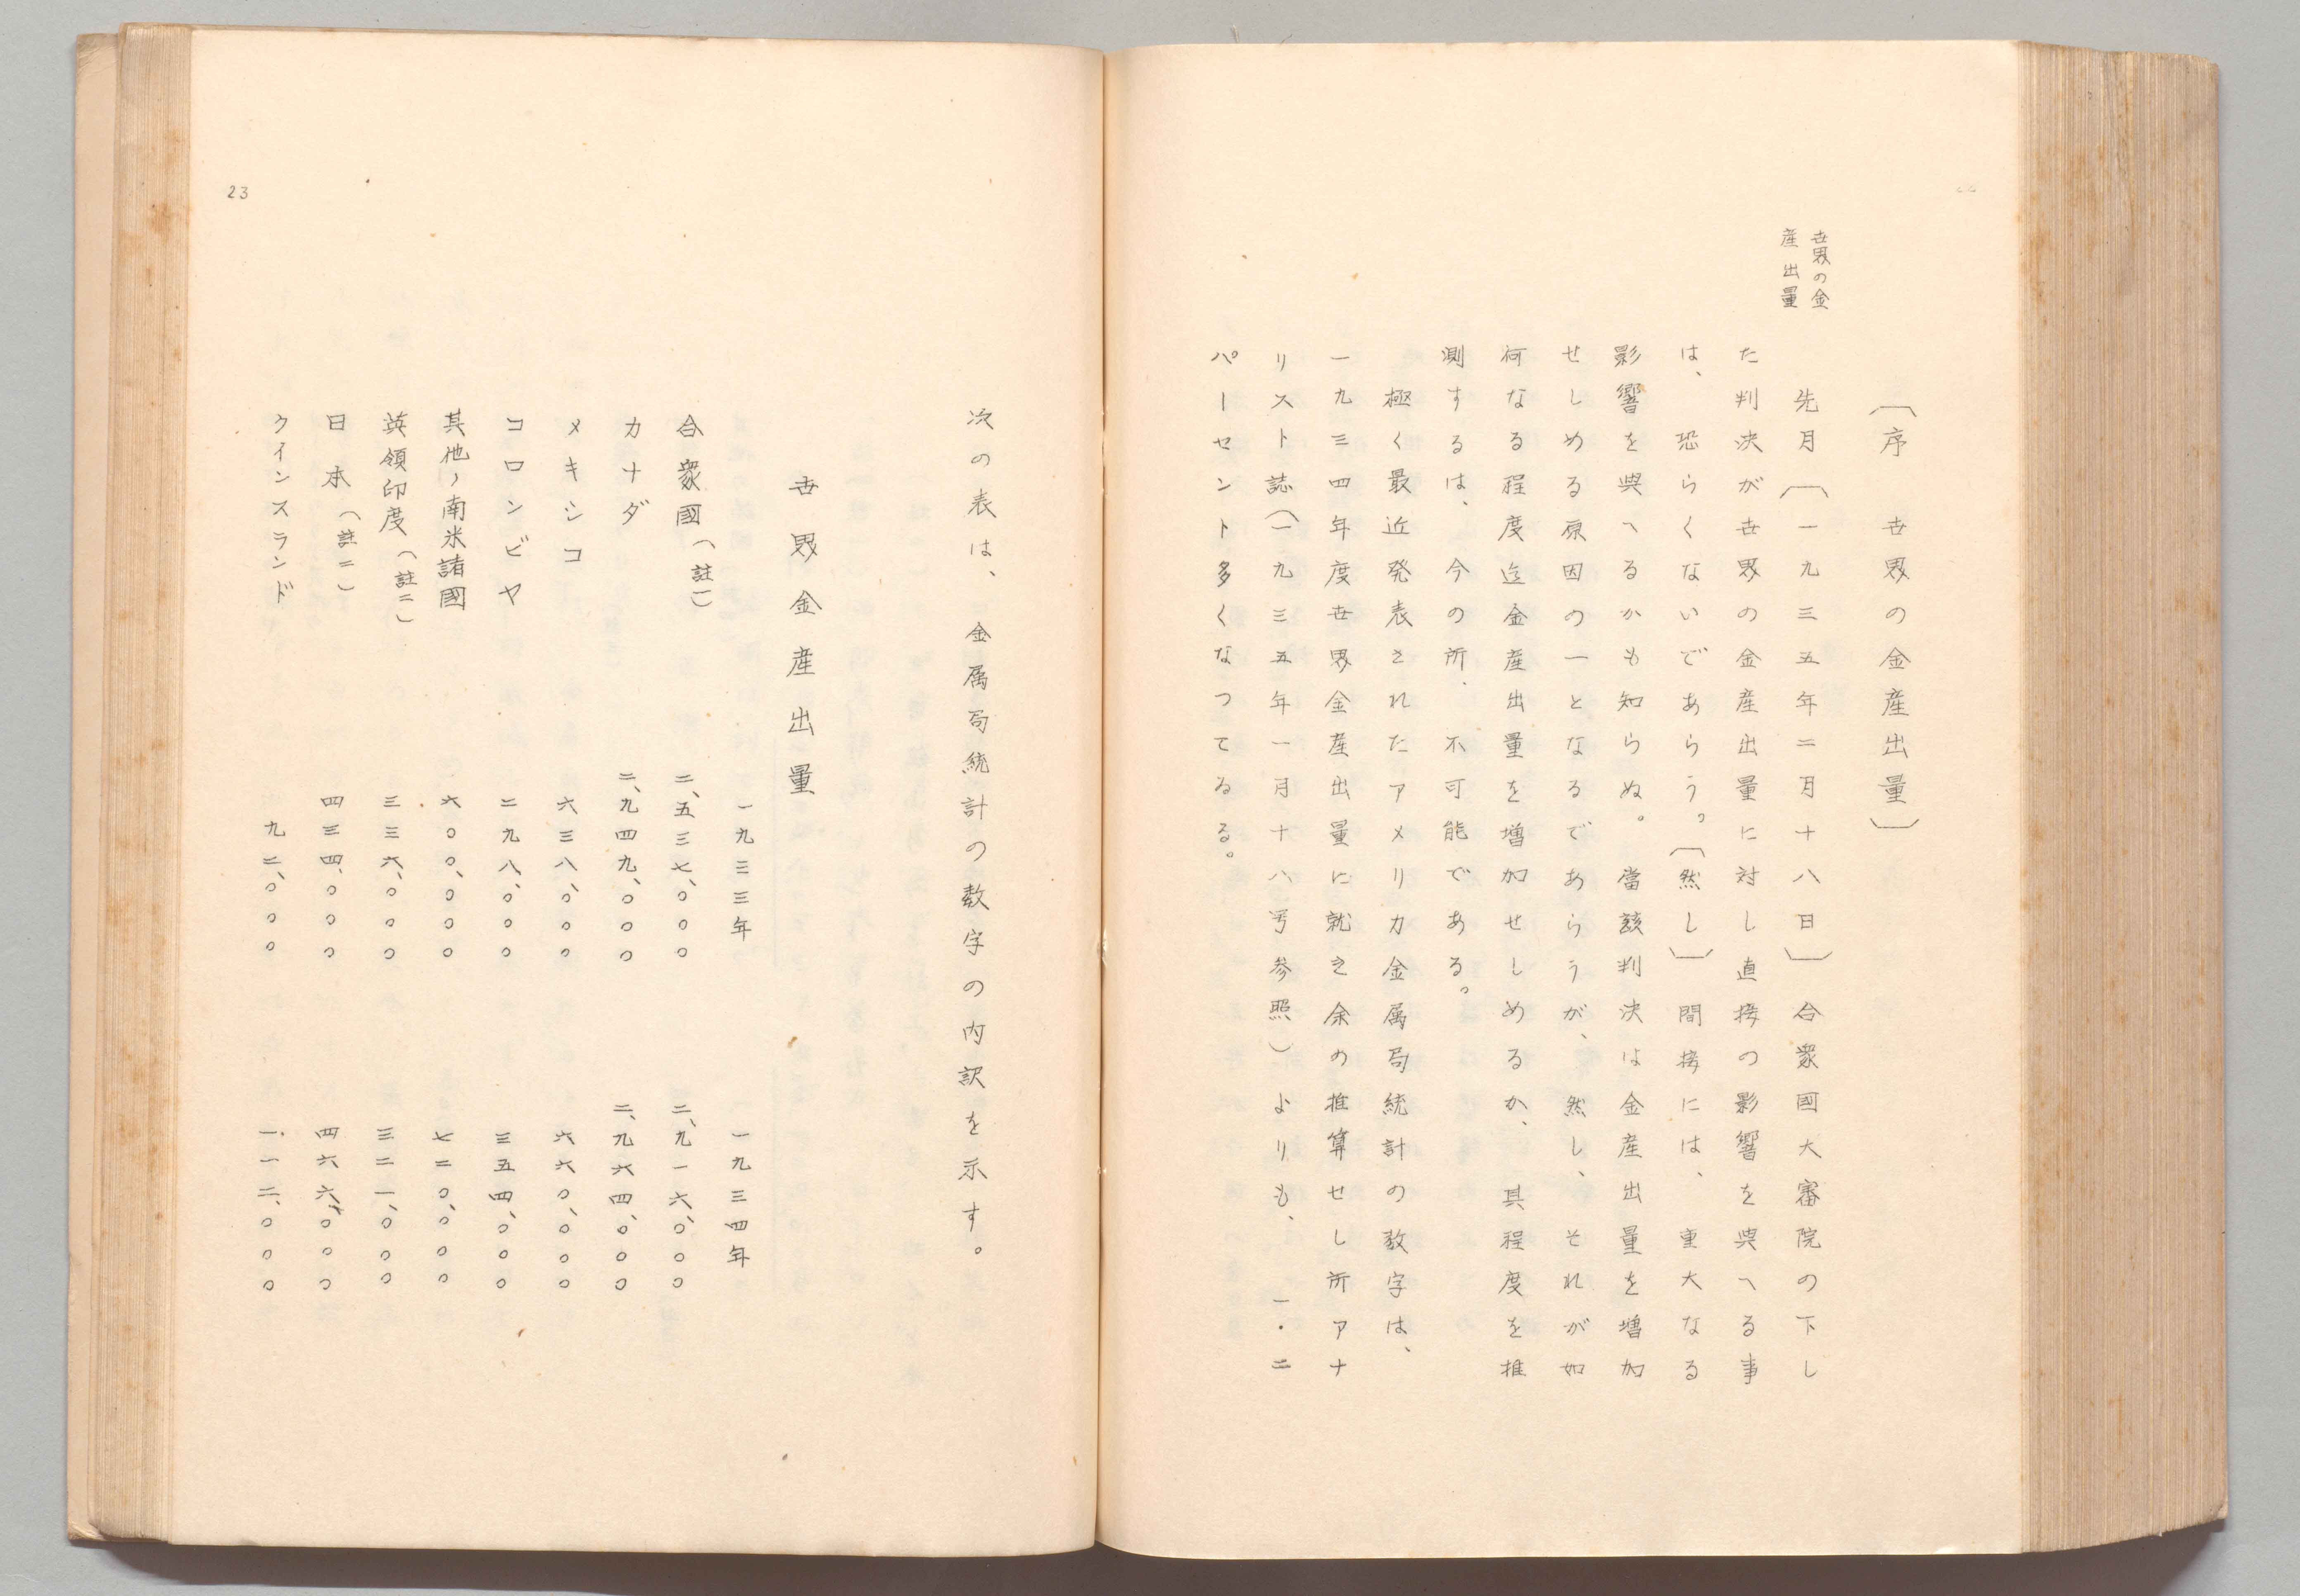 世界の金
産出量
〔序　世界の金産出量〕
先月〔一九三五年二月十八日〕合衆國大審院の下し
た判決が世界の金産出量に対し直接の影響を與へる事
は、恐らくないであらう。〔然し〕間接には、重大なる
影響を與へるかも知らぬ。當該判決は金産出量を増加
せしめる原因の一となるであらうが、然し、それが如
何なる程度迄金産出量を増加せしめるか、其程度を推
測するは、今の所、不可能である。
極く最近発表されたアメリカ金属局統計の数字は、
一九三四年度世界金産出量に就き余の推算せし所アナ
リスト誌（一九三五年一月十八号参照）よりも、一・二
パーセント多くなつてゐる。
23
次の表は、金属局統計の数字の内訳を示す。
世界金産出量
一九三三年　一九三四年
合衆國（註一）　二、五三七、〇〇〇　二、九一六、〇〇〇
カナダ　二、九四九、〇〇〇　二、九六四、〇〇〇
メキシコ　六三八、〇〇〇　六六〇、〇〇〇
コロンビヤ　二九八、〇〇〇　三五四、〇〇〇
其他ノ南米諸國　六〇〇、〇〇〇　七二〇、〇〇〇
英領印度（註二）　三三六、〇〇〇　三二一、〇〇〇
日本（註二）　四三四、〇〇〇　四六六、〇〇〇
クインスランド　九二、〇〇〇　一一二、〇〇〇